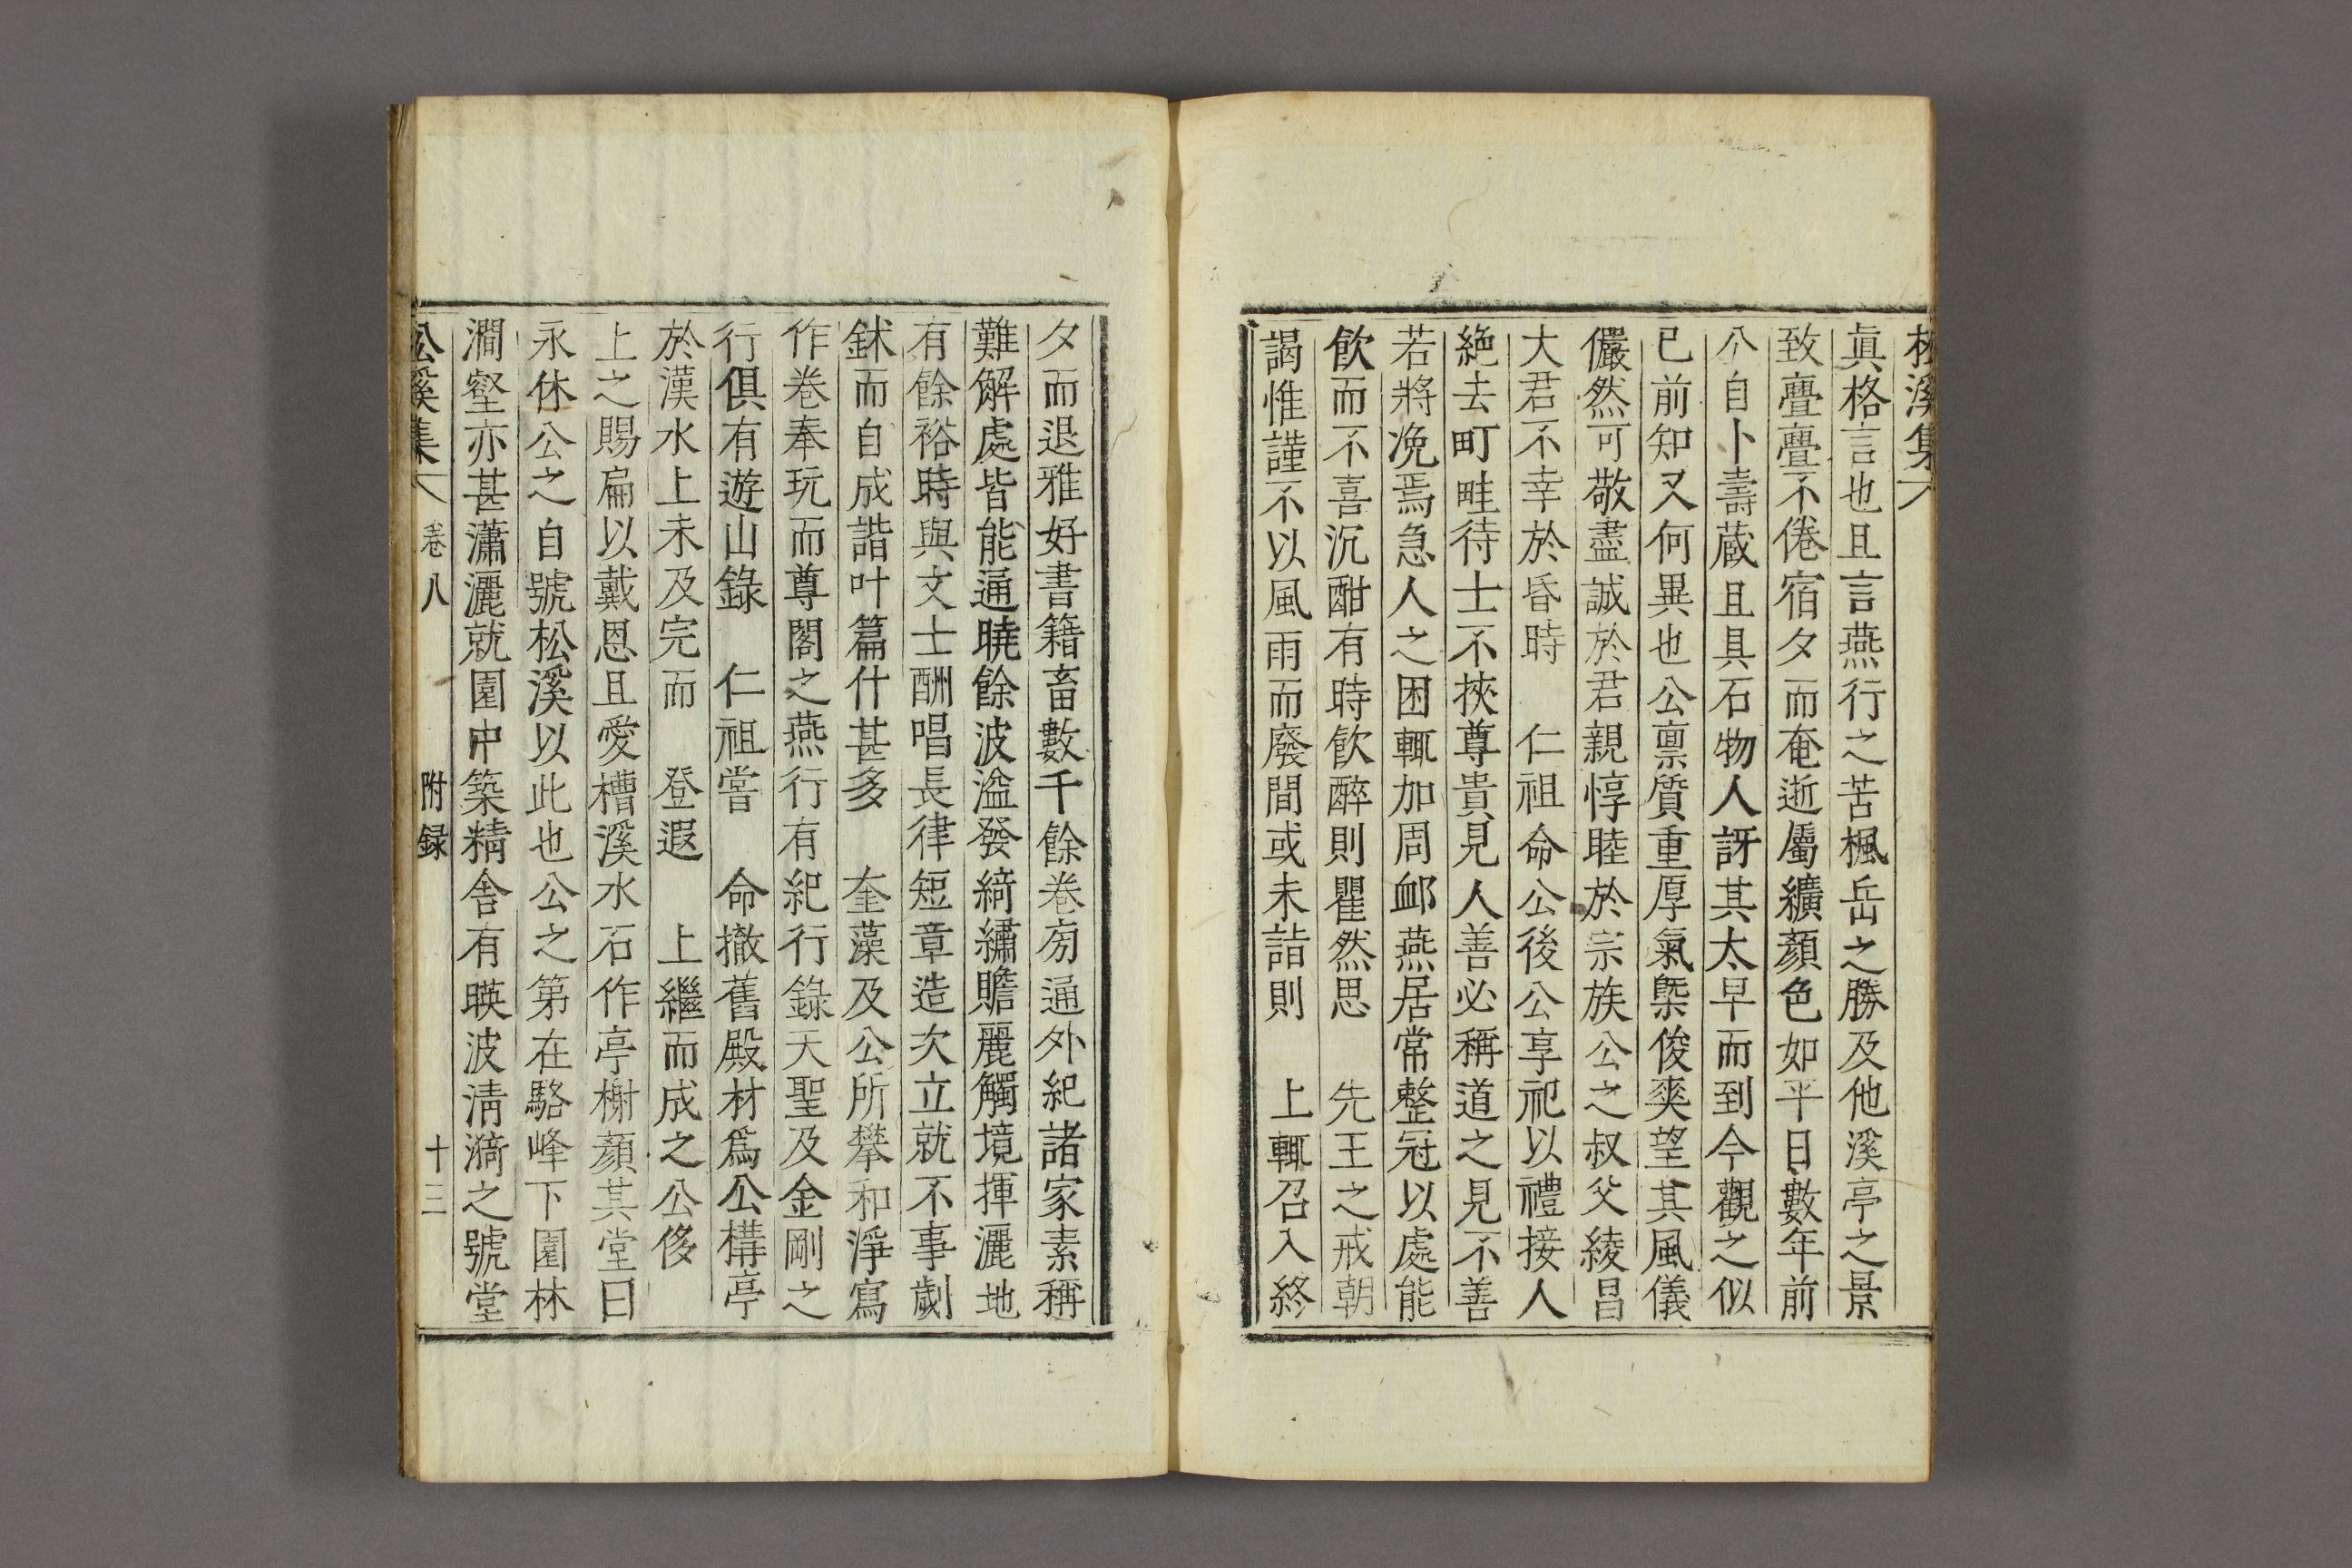 松溪集
眞格言也且言燕行之苦楓岳之勝及他溪亭之景
致亹亹不倦宿夕而奄逝屬纊顏色如平日數年前
公自卜壽藏且具石物人訝其太早而到今觀之似
已前知又何異也公禀質重厚氣槩俊爽望其風儀
儼然可敬盡誠於君親惇睦於宗族公之叔父綾昌
大君不幸於昏時 仁祖命公後公享祀以禮接人
絶去町畦待士不挾尊貴見人善必稱道之見不善
若將浼焉急人之困輒加周卹燕居常整冠以處能
飮而不喜沉酣有時飮醉則瞿然思 先王之戒朝
謁惟謹不以風雨而廢間或未詣則 上輒召入終
夕而退雅好書籍畜數千餘卷旁通外紀諸家素稱
難解處皆能通曉餘波溢發綺繡贍麗觸境揮灑地
有餘裕時與文士酬唱長律短章造次立就不事劌
鉥而自成諧叶篇什甚多 奎藻及公所攀和淨寫
作卷奉玩而尊閣之燕行有紀行錄天聖及金剛之
行俱有遊山錄 仁祖嘗 命撤舊殿材爲公構亭
於漢水上未及完而 登遐 上繼而成之公侈
上之賜扁以戴恩且愛槽溪水石作亭榭顏其堂曰
永休公之自號松溪以此也公之第在駱峰下園林
澗壑亦甚瀟灑就園中築精舍有暎波淸漪之號堂
松溪集 卷八 附録 十三